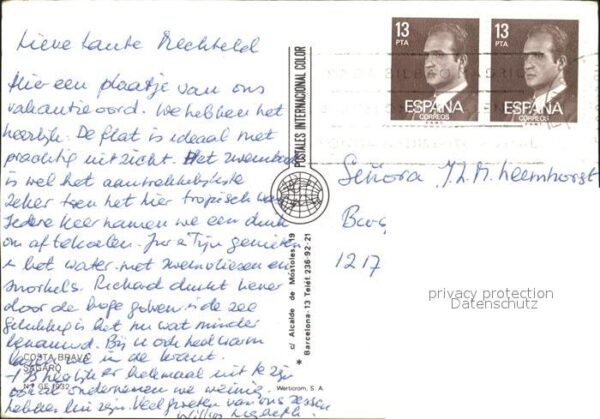 Lieve tante Mechteld
Hier een plaatje van ons
vakantieoord. We hebben het
heerlijk. De flat is ideaal met
prachtig uitzicht. Het zwembad
is wel het aantrekkelijkste
zeker toen het hier tropisch was
Iedere keer namen we een duik
om af te koelen. Jur & Tijn genieten
in het water met zwemvliezen en
snorkels. Richard duikt liever
door de hoge golven in de zee
Gelukkig is het nu wat minder
benauwd. Bij u ook heel warm
lazen we in de krant.
't Is heerlijk er helemaal uit te zijn
ondernemen we weinig
hebben Veel groeten van ons zessen
Willy
COSTA BRAVA
S'AGARO
N.º GE 1932
POSTALES INTERNACIONAL COLOR
c/ Alcalde de Móstoles, 19
* Barcelona-13 Teléf. 236-92-21
Werticrom, S. A.
13
PTA
ESPAÑA
CORREOS
13
PTA
ESPAÑA
CORREOS
Señora J.L.M. Leemhorst
1217
privacy protection
Datenschutz